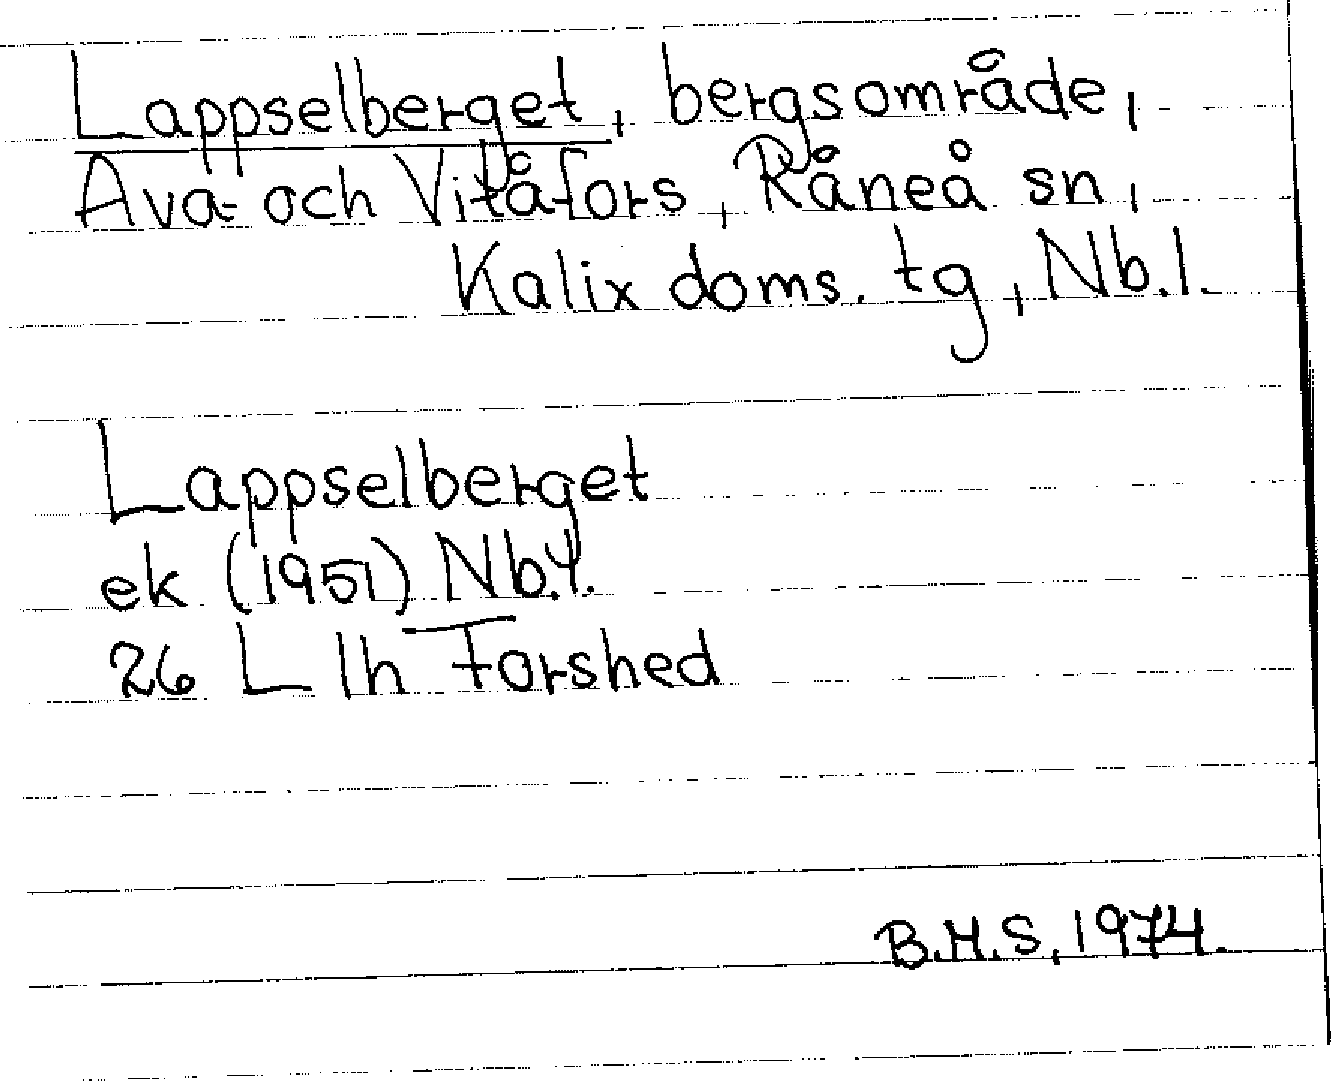 Lappselberget, bergsområde,
Ava- och Vitåfors, Råneå sn,
Kalix doms. tg, Nb.l.
Lappselberget
ek (1951) Nb.Y.
26 L lh Forshed
B.H.S, 1974.